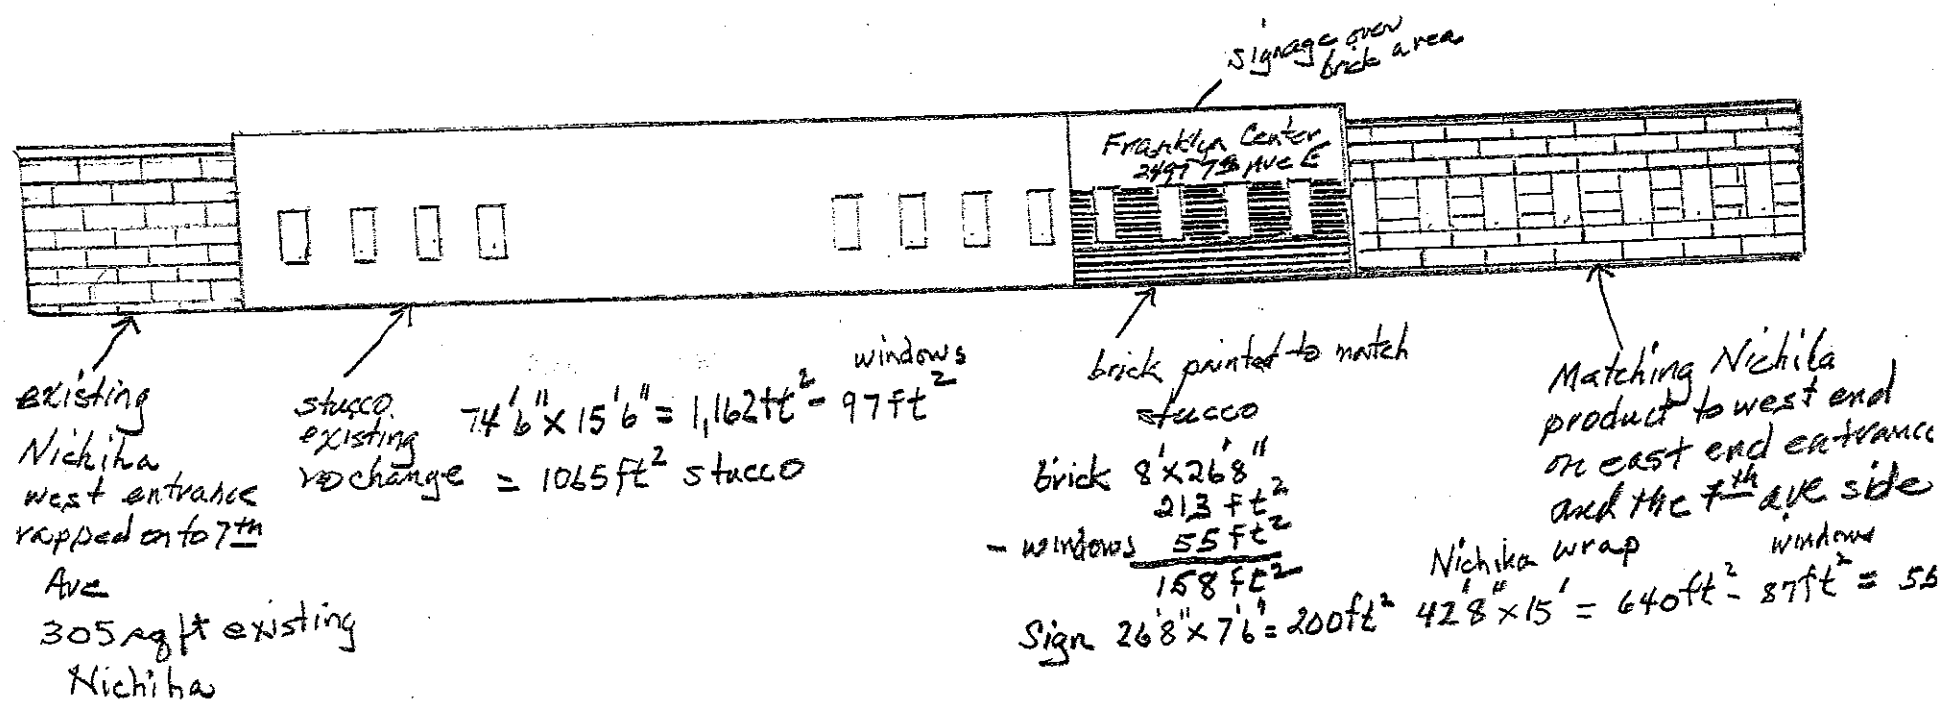 signage over
brick area
Franklyn Center
2497 7th Ave E
existing
Nichiha
west entrance
rapped on to 7th
Ave
305 sq ft existing
Nichiha
stucco
existing
no change
windows
74'6" x 15'6" = 1,162 ft² - 97 ft²
= 1065 ft² stucco
brick painted to match
stucco
brick 8' x 26'8"
213 ft²
- windows 55 ft²
158 ft²
Sign 26'8" x 7'6" = 200 ft²
Matching Nichiha
product to west end
on east end entrance
and the 7th ave side
Nichiha wrap
windows
42'8" x 15' = 640 ft² - 87 ft² = 55